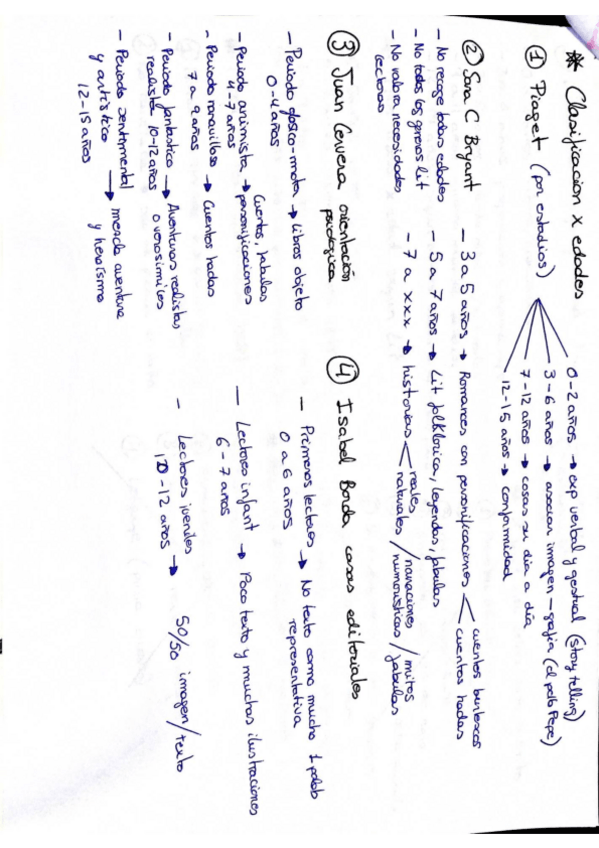 * Clasificacion x edades
① Piaget (por estadios)
0-2 años → exp verbal y gestual (story telling)
3-6 años → asociar imagen - grafia (el pollo Pepe)
7-12 años → cosas su dia a día
12-15 años → conformidad
② Sara C Bryant
- No recoge todas edades
- No todos los generos lit
- No valora necesidades
lectoras
- 3 a 5 años → Romances con personificaciones < cuentos burlescos
cuentos hadas
- 5 a 7 años → Lit folklorica, leyendas, fabulas
- 7 a xxx → historias < reales / narraciones / mitos
naturales / humorísticas / fabulas
③ Juan Cervera orientación
psicologica
- Periodo glosico-motor → libros objeto
0-4 años
- Periodo animista → cuentos, fabulas
4-7 años personificaciones
- Periodo maravilloso → Cuentos hadas
7 a 9 años
- Periodo fantastico → Aventuras realistas
realista 10-12 años o verosimiles
- Periodo sentimental → mezcla aventura
y artistico y heroísmo
12-15 años
④ Isabel Borda casas editoriales
- Primeros lectores → No texto como mucho 1 palab
0 a 6 años representativa
- Lectores infant → Poco texto y muchas ilustraciones
6-7 años
- Lectores juveniles
10-12 años → 50/50 imagen/texto